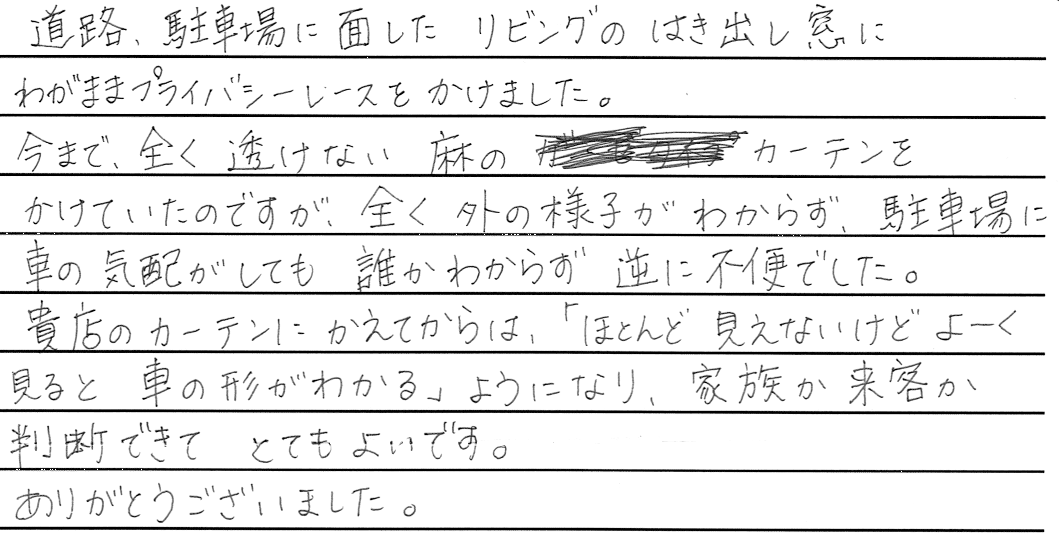 道路、駐車場に面した リビングの はき出し窓に
わがままプライバシーレースを かけました。
今まで、全く 透けない 麻の カーテンを
かけていたのですが、全く 外の様子が わからず、駐車場に
車の 気配がしても 誰かわからず 逆に不便でした。
貴店の カーテンに かえてからは、「ほとんど 見えないけど よーく
見ると 車の 形がわかる」ようになり、家族か 来客か
判断できて とてもよいです。
ありがとうございました。